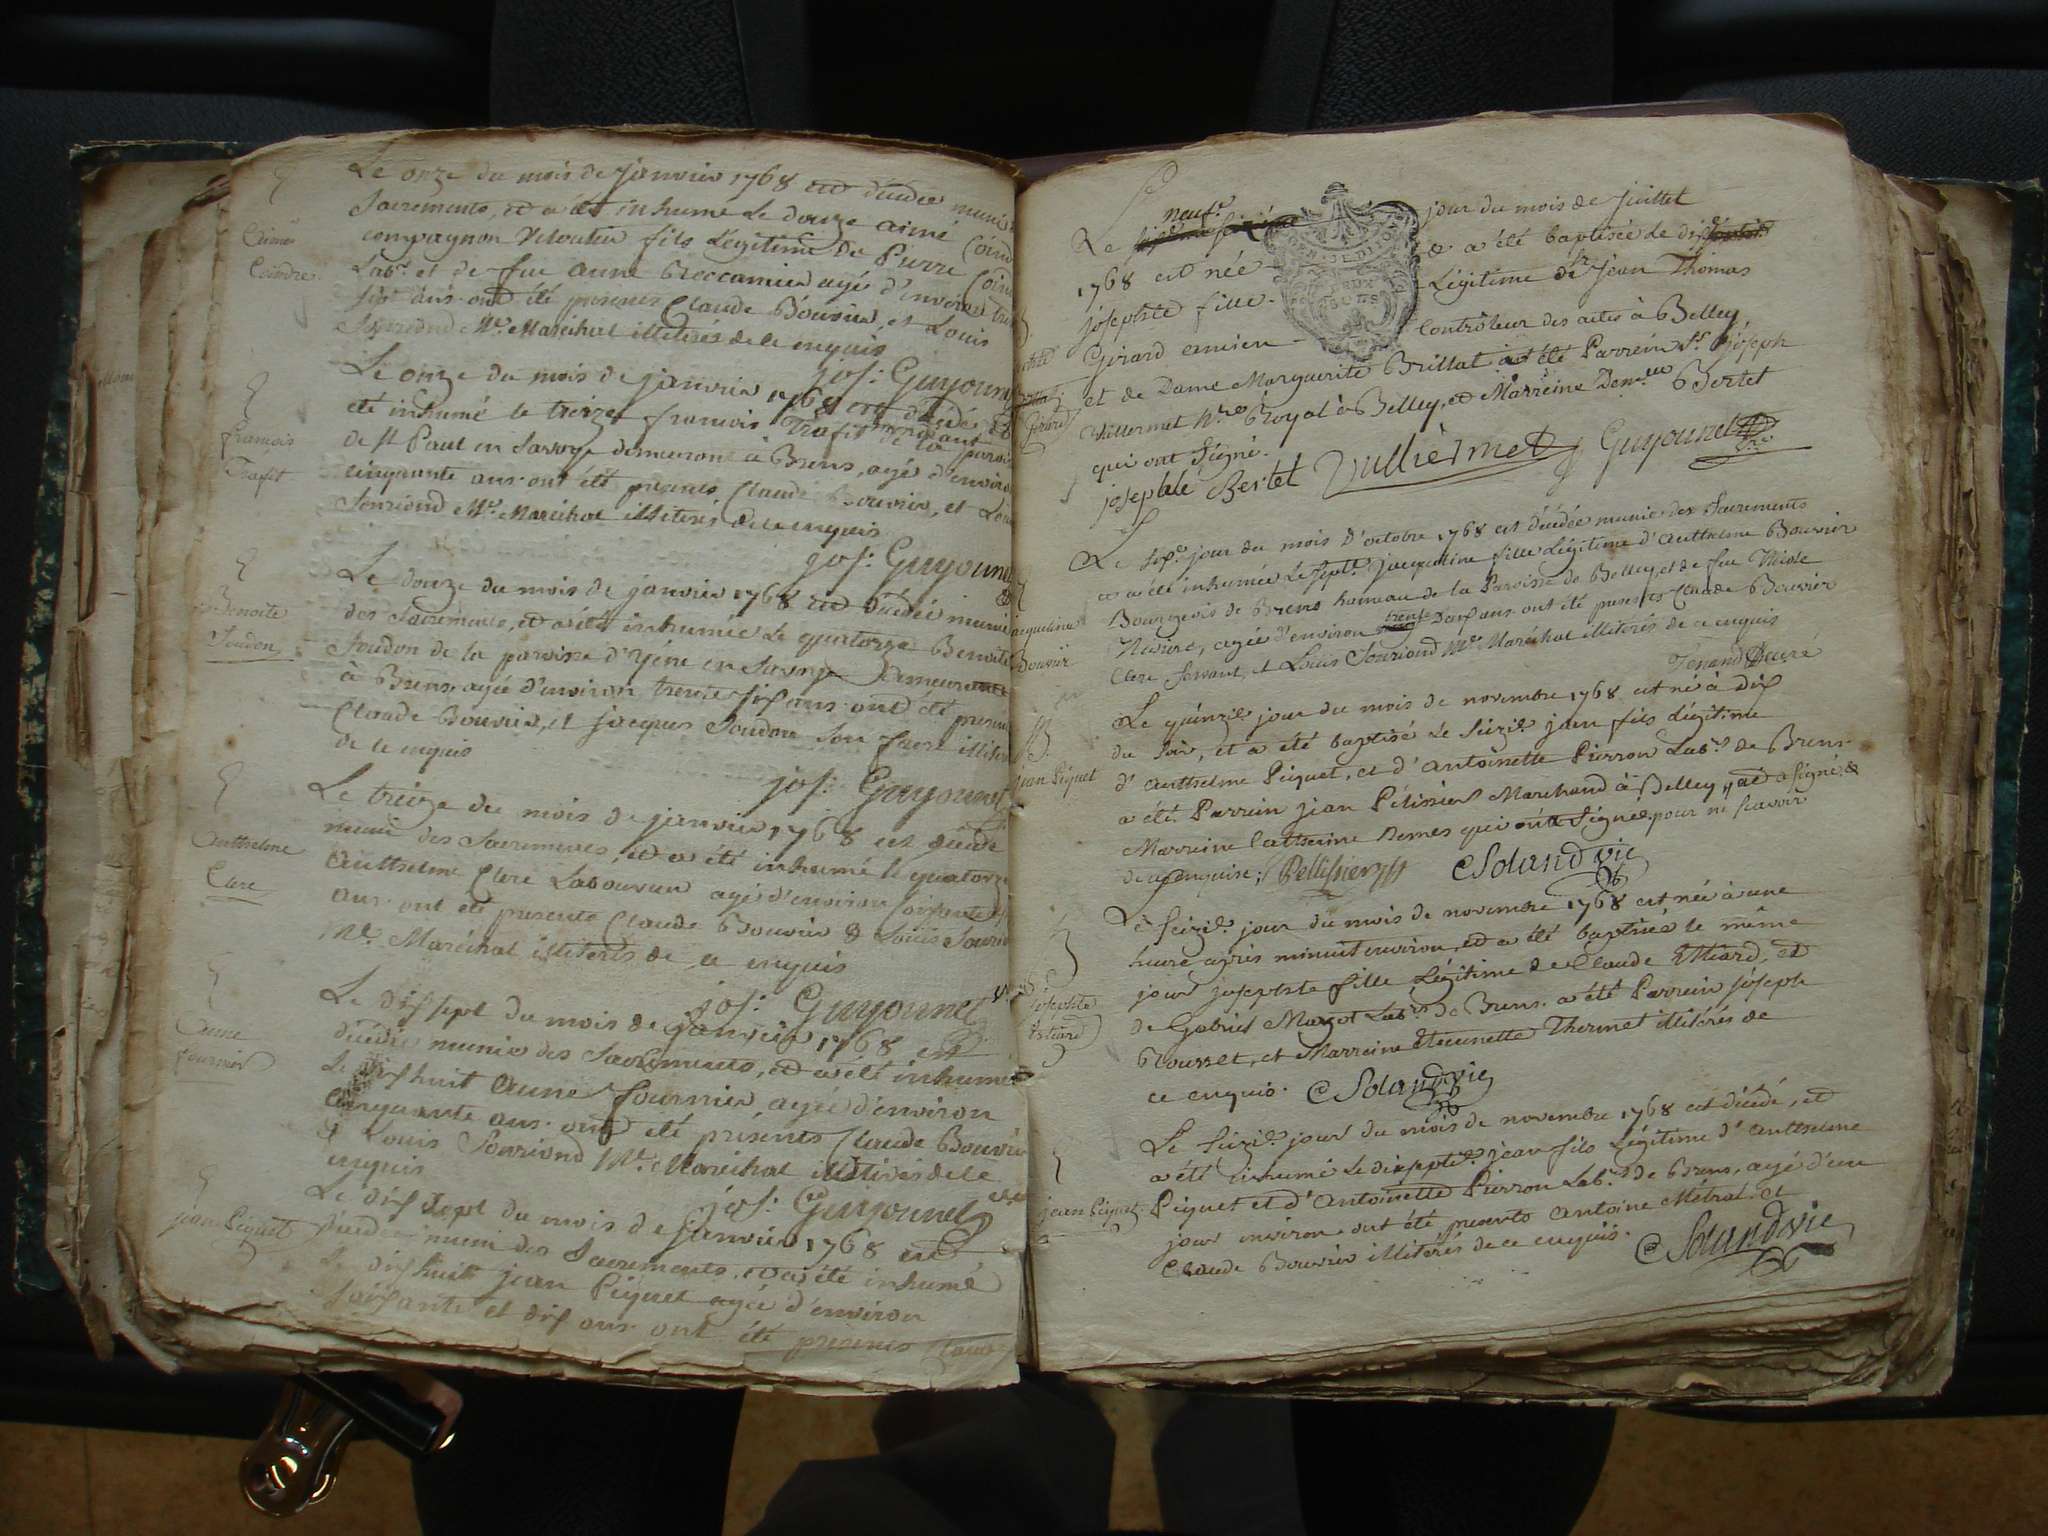 Le onze du mois de janvier 1768 est décédé muni des
Sacrements, et a été inhumé Le douze aimé Coind
compagnon Veloutier fils Légitime de Pierre Coind
Lab.r et de feue anne
sept ans. ont été présents Claude Bouvier, et Louis
Souriond M.e Maréchal illiterés de ce enquis
jos: Guyounet
aimé
Coindre
Le onze du mois de janvier 1768 est décédé et a
été inhumé le treize françois Trafit de la parois
de St Paul en Savoye demeurant à Brens, agé d'enviro
cinquante ans. ont été présents Claude Bouvier, et Loui
Souriond M.e Maréchal illiterés de ce enquis
jos: Guyounet
françois
Trafit
Le douze du mois de janvier 1768 est décédée munie
des Sacrements, et a été inhumée Le quatorze Benoite
Joudon de la paroisse d'yène en Savoye Demeurante
à Brens, agée d'environ trente six ans. ont été présen
Claude Bouvier, et jacques Joudon son frere illiter
de ce enquis
jos: Guyounet
Benoite
Joudon
Le treize du mois de janvier 1768 est décédé
muni des Sacrements, et a été inhumé le quatorze
Anthelme Clerc Laboureur agé d'environ soixante
ans. ont été présents Claude Bouvier & Louis Sourio
M.e Maréchal illiterés de ce enquis
jos: Guyounet
Anthelme
Clerc
Le dix sept du mois de janvier 1768 est
décédée munie des Sacrements, et a été inhumée
Le dixhuit Anne fournier, agée d'environ
cinquante ans. ont été présents Claude Bouvie
& Louis Souriond M.e Maréchal illiterés de ce
enquis
jos: Guyounet
Anne
fournier
Le dix sept du mois de janvier 1768 est
décédé muni des Sacrements, et a été inhumé
Le dixhuit jean Péquet agée d'environ
soixante et dix ans. ont été présents Claude
jean Péquet
Le neuf.e jour du mois de juillet
1768 est née & a été baptisée Le dix.e
josephte fille Légitime de S.r jean Thomas
Girard ancien Contrôleur des actes à Belley
et de Dame Marguerite Brillat a été Parrein S.r joseph
Vullermet N.re Royal à Belley, et Marreine Dem.lle Bertet
qui ont Signé.
josephte Bertet Vulliermet Guyounet
Girard
Le six.e jour du mois d'octobre 1768 est décédée munie des Sacrements
et a été inhumée Le sept.e jacqueline fille Légitime d'Anthelme Bouvier
Bourgeois de Brens hameau de la Paroisse de Belley, et de feue
agée d'environ trente Deux ans. ont été présents Claude Bouvier
Clerc Servant, et Louis Souriond M.e Maréchal illiterés de ce enquis
jacqueline
Bouvier
Le quinzie. jour du mois de novembre 1768 est né à dix
du soir, et a été baptisé Le Seizie. jean fils Légitime
d'Anthelme Péquet, et d'Antoinette Pierron Lab.rs de Brens.
a été Parrein jean Pélissier Marchand à Belley, qui a signé, &
Marreine Catherine Demes qui n'a Signé pour ne sçavoir
de ce enquise; Pellissier Soland vic
jean Péquet
Le Seizie. jour du mois de novembre 1768 est née à une
heure après minuit environ, et a été baptisée le même
jour josephte fille Légitime de Claude Utiard, et
de Gabriel Margot Lab.rs de Brens. a été Parrein joseph
Rousset, et Marreine Etiennette Thermet illiterés de
ce enquis. Soland vic
josephte
Utiard
Le Seizie. jour du mois de novembre 1768 est décédé, et
a été inhumé Le dixsepti.e jean fils Légitime d'Anthelme
Péquet et d'Antoinette Pierron Lab.rs de Brens, agé d'un
jour environ. ont été présents Antoine Métral et
Claude Bouvier illiterés de ce enquis. Soland vic
jean Péquet